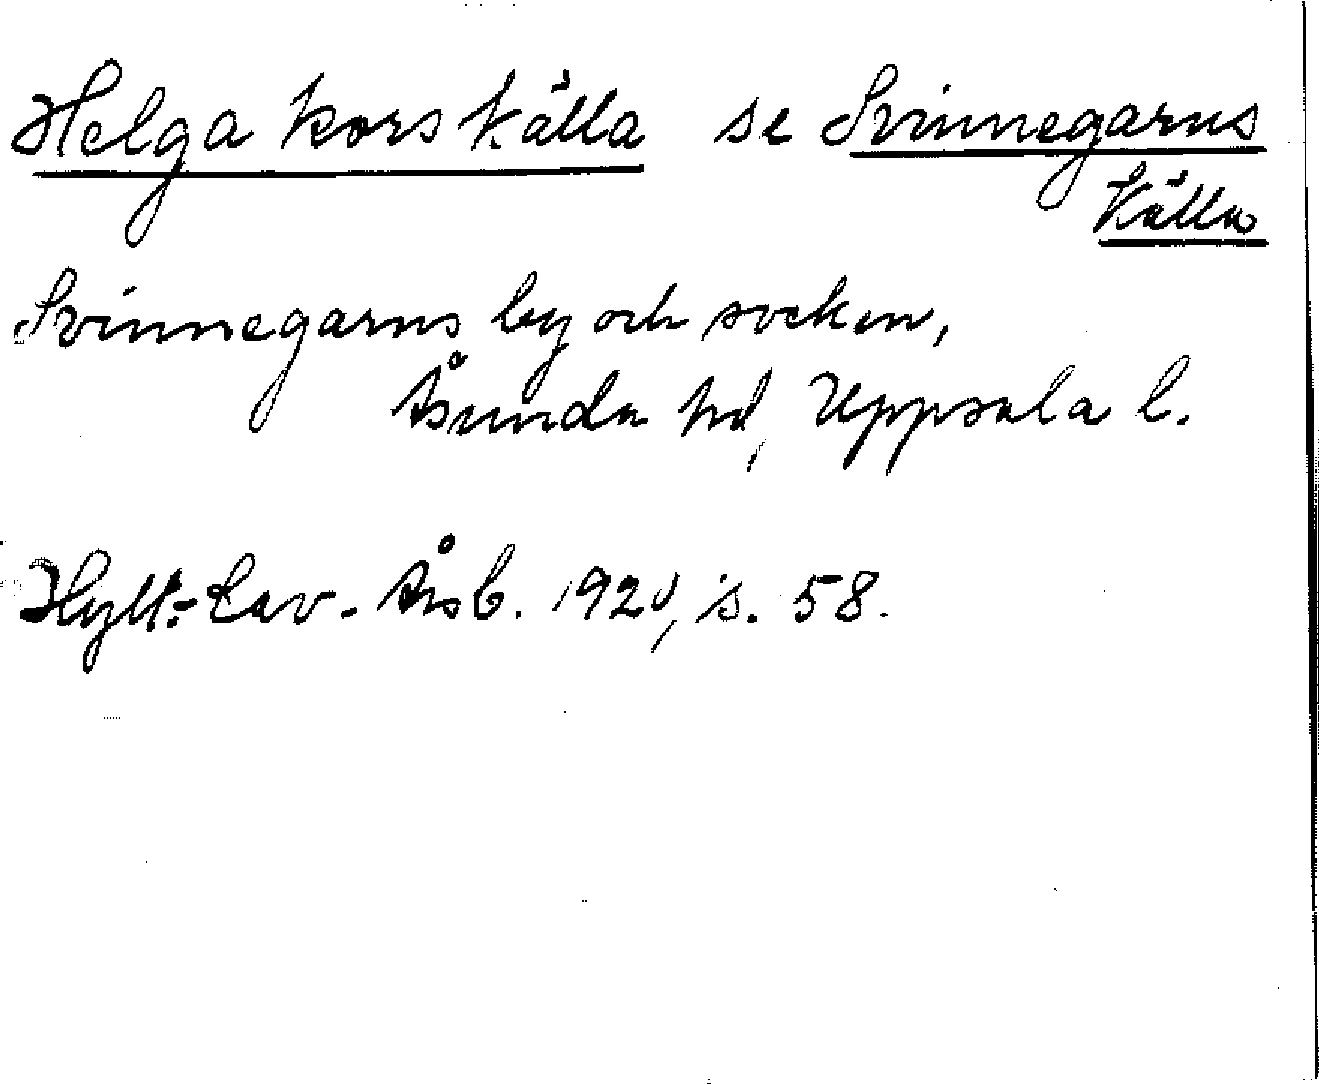 Helga kors källa se Svinnegarns
källa
Svinnegarns by och socken,
Åsunda hd, Uppsala l.
Hylt.-Cav. Årsb. 1920, s. 58.